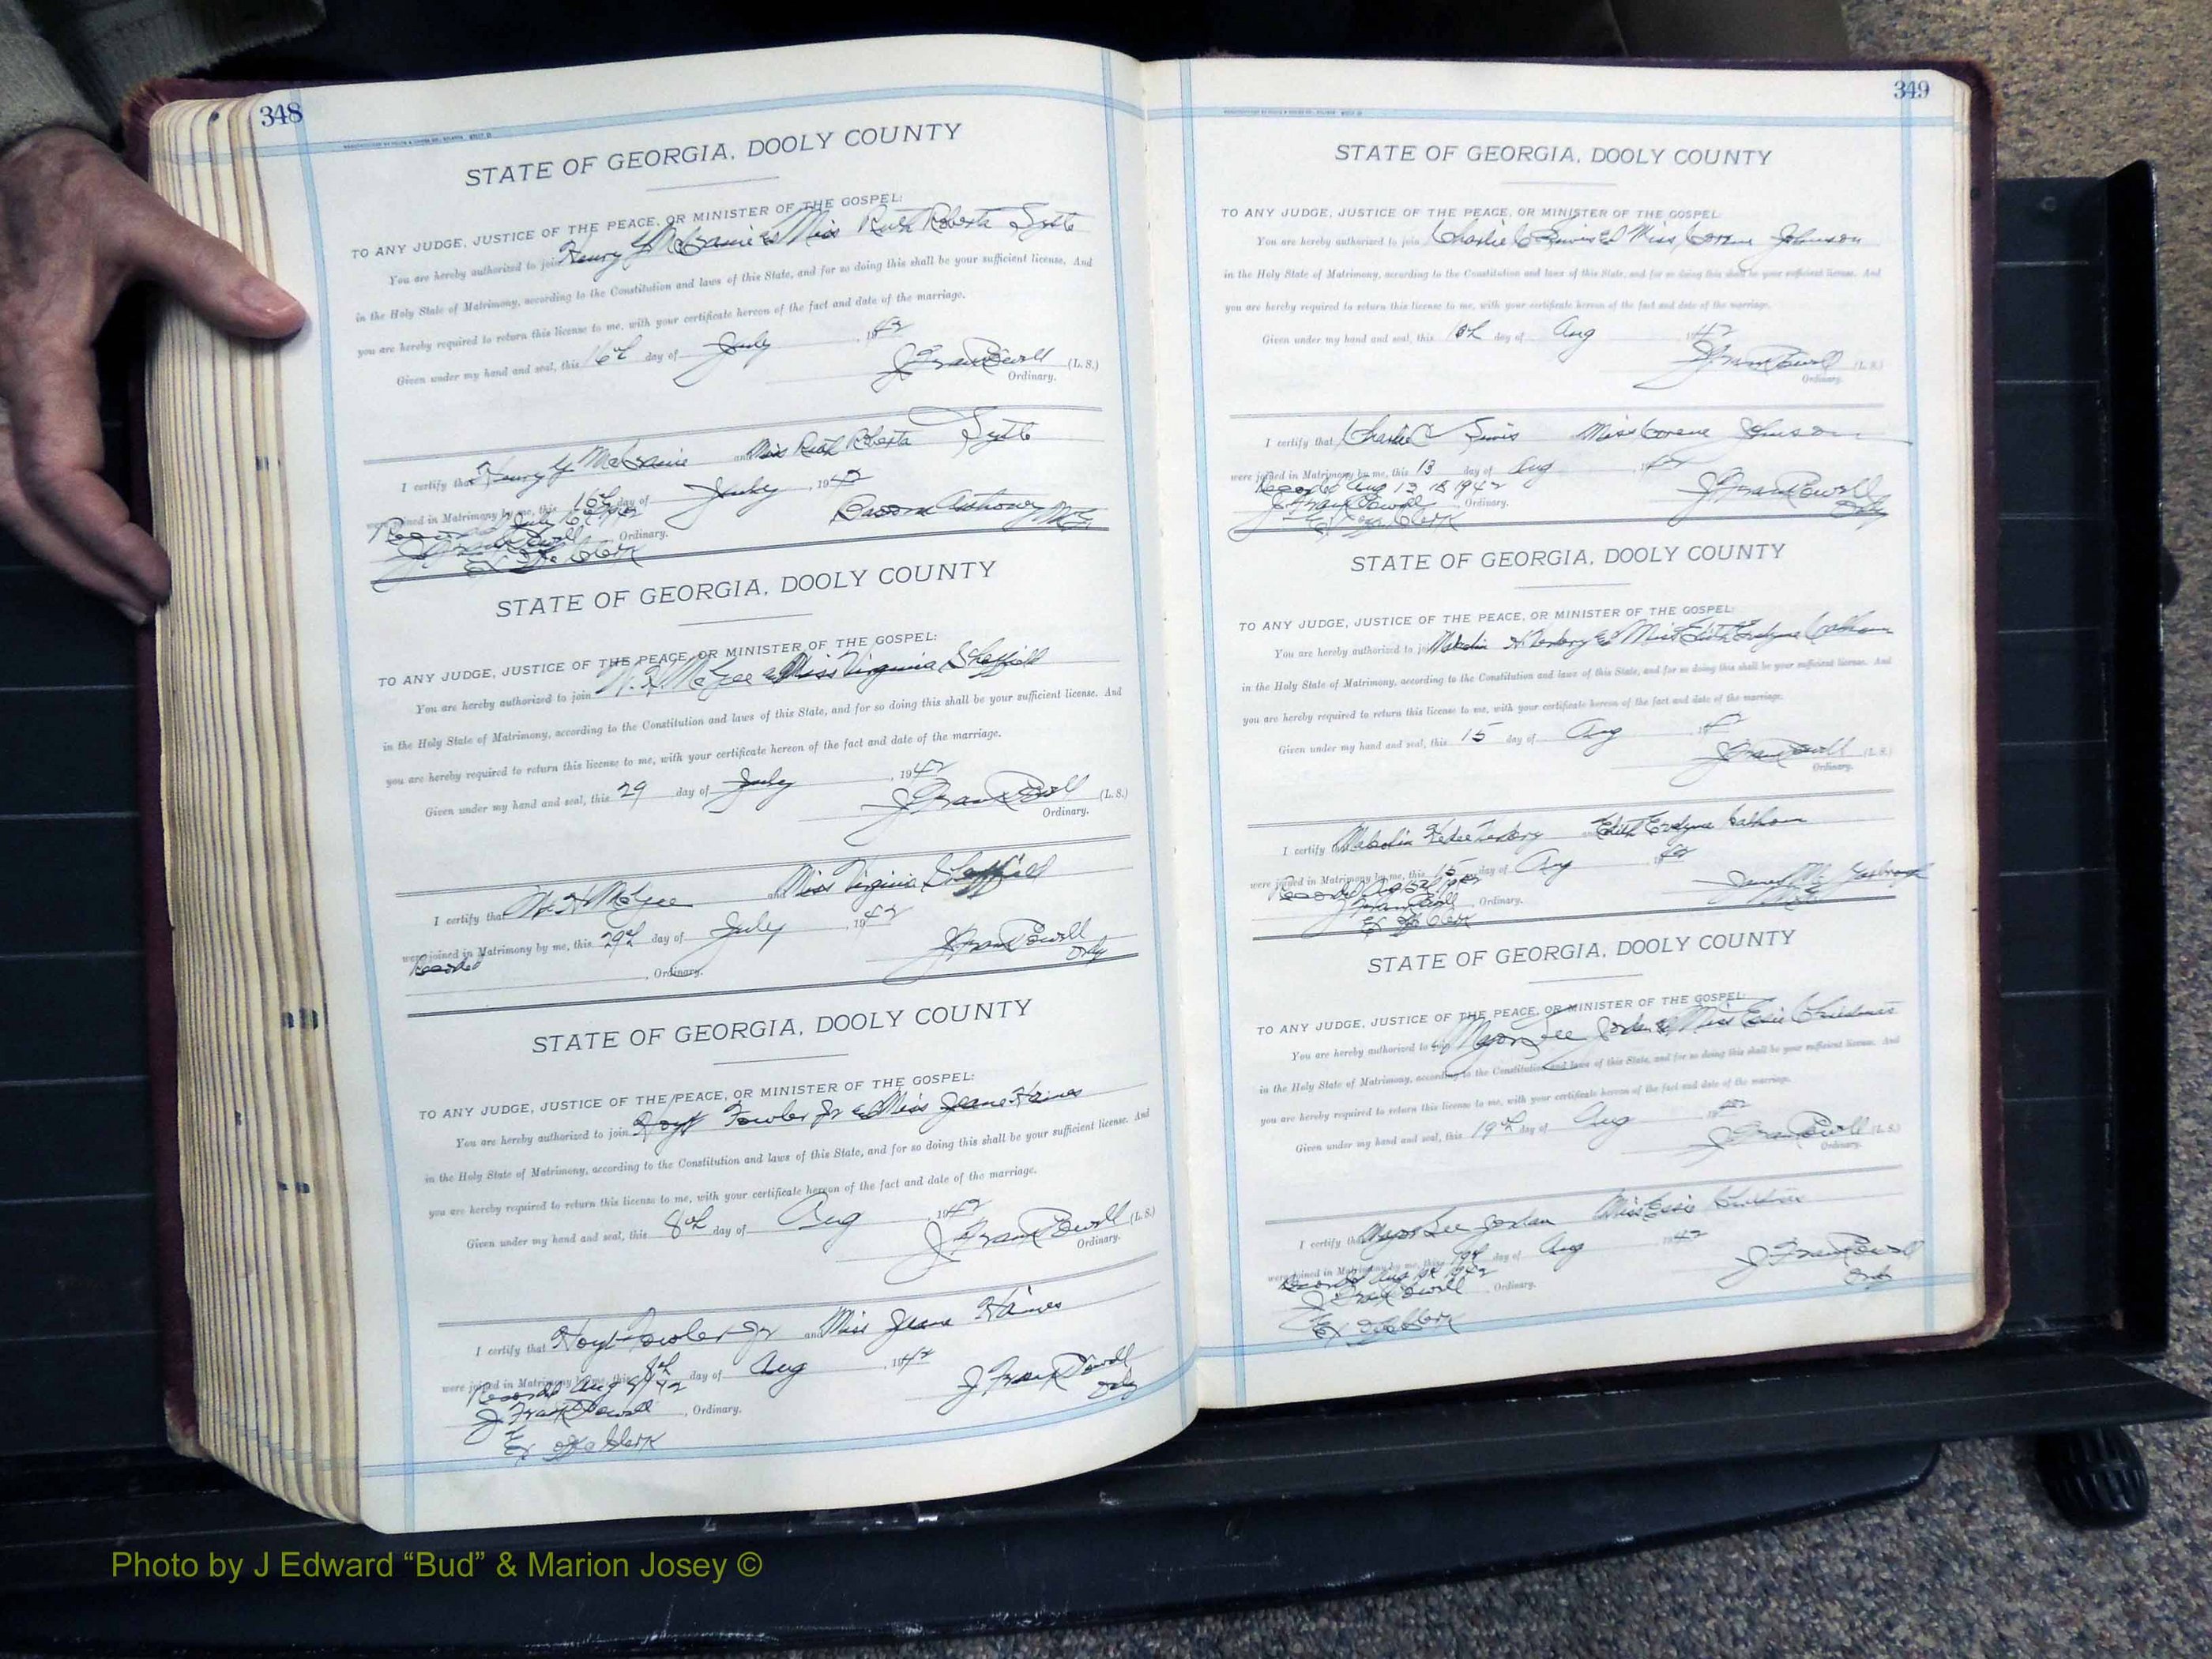 348
STATE OF GEORGIA, DOOLY COUNTY
TO ANY JUDGE, JUSTICE OF THE PEACE, OR MINISTER OF THE GOSPEL:
You are hereby authorized to join Henry Miss Ruth Roberta
in the Holy State of Matrimony, according to the Constitution and laws of this State, and for so doing this shall be your sufficient license. And
you are hereby required to return this license to me, with your certificate hereon of the fact and date of the marriage.
Given under my hand and seal, this 16th day of July , 1942
J Frank Powell (L. S.)
Ordinary.
I certify that Henry and Miss Ruth Roberta
were joined in Matrimony by me, this 16th day of July , 1942
Recorded July
J Frank Powell , Ordinary.
Ex Clerk
STATE OF GEORGIA, DOOLY COUNTY
TO ANY JUDGE, JUSTICE OF THE PEACE, OR MINISTER OF THE GOSPEL:
You are hereby authorized to join W. H. McGee & Miss Virginia Sheffield
in the Holy State of Matrimony, according to the Constitution and laws of this State, and for so doing this shall be your sufficient license. And
you are hereby required to return this license to me, with your certificate hereon of the fact and date of the marriage.
Given under my hand and seal, this 29 day of July , 1942
J Frank Powell (L. S.)
Ordinary.
I certify that W. H. McGee and Miss Virginia Sheffield
were joined in Matrimony by me, this 29th day of July , 1942
Recorded J Frank Powell
, Ordinary. Ordy
STATE OF GEORGIA, DOOLY COUNTY
TO ANY JUDGE, JUSTICE OF THE PEACE, OR MINISTER OF THE GOSPEL:
You are hereby authorized to join Hoyt Fowler Jr & Miss Jeane Haines
in the Holy State of Matrimony, according to the Constitution and laws of this State, and for so doing this shall be your sufficient license. And
you are hereby required to return this license to me, with your certificate hereon of the fact and date of the marriage.
Given under my hand and seal, this 8th day of Aug , 1942
J Frank Powell (L. S.)
Ordinary.
I certify that Hoyt Fowler Jr and Miss Jeane Haines
were joined in Matrimony by me, this 8th day of Aug , 1942
Recorded Aug J Frank Powell
J Frank Powell , Ordinary. Ordy
Ex Clerk
349
STATE OF GEORGIA, DOOLY COUNTY
TO ANY JUDGE, JUSTICE OF THE PEACE, OR MINISTER OF THE GOSPEL:
You are hereby authorized to join Charlie C & Miss Johnson
in the Holy State of Matrimony, according to the Constitution and laws of this State, and for so doing this shall be your sufficient license. And
you are hereby required to return this license to me, with your certificate hereon of the fact and date of the marriage.
Given under my hand and seal, this day of Aug 1942
J Frank Powell (L. S.)
Ordinary.
I certify that Charlie C Miss Johnson
were joined in Matrimony by me, this 13 day of Aug , 1942
Recorded Aug 13 1942 J Frank Powell
J Frank Powell , Ordinary. Ordy
Clerk
STATE OF GEORGIA, DOOLY COUNTY
TO ANY JUDGE, JUSTICE OF THE PEACE, OR MINISTER OF THE GOSPEL:
You are hereby authorized to join & Miss Edith Calhoun
in the Holy State of Matrimony, according to the Constitution and laws of this State, and for so doing this shall be your sufficient license. And
you are hereby required to return this license to me, with your certificate hereon of the fact and date of the marriage.
Given under my hand and seal, this 15 day of Aug
J Frank Powell (L. S.)
Ordinary.
I certify that Edith Calhoun
were joined in Matrimony by me, this 15 day of Aug 1942
Recorded Aug
J Frank Powell , Ordinary.
Ex Clerk
STATE OF GEORGIA, DOOLY COUNTY
TO ANY JUDGE, JUSTICE OF THE PEACE, OR MINISTER OF THE GOSPEL:
You are hereby authorized to join Major Lee Jordan & Miss Essie
in the Holy State of Matrimony, according to the Constitution and laws of this State, and for so doing this shall be your sufficient license. And
you are hereby required to return this license to me, with your certificate hereon of the fact and date of the marriage.
Given under my hand and seal, this 19th day of Aug 1942
J Frank Powell (L. S.)
Ordinary.
I certify that Major Lee Jordan Miss Essie
were joined in Matrimony by me, this day of Aug 1942
Recorded Aug 1942 J Frank Powell
J Frank Powell , Ordinary. Ordy
Ex Clerk
Photo by J Edward “Bud” & Marion Josey ©